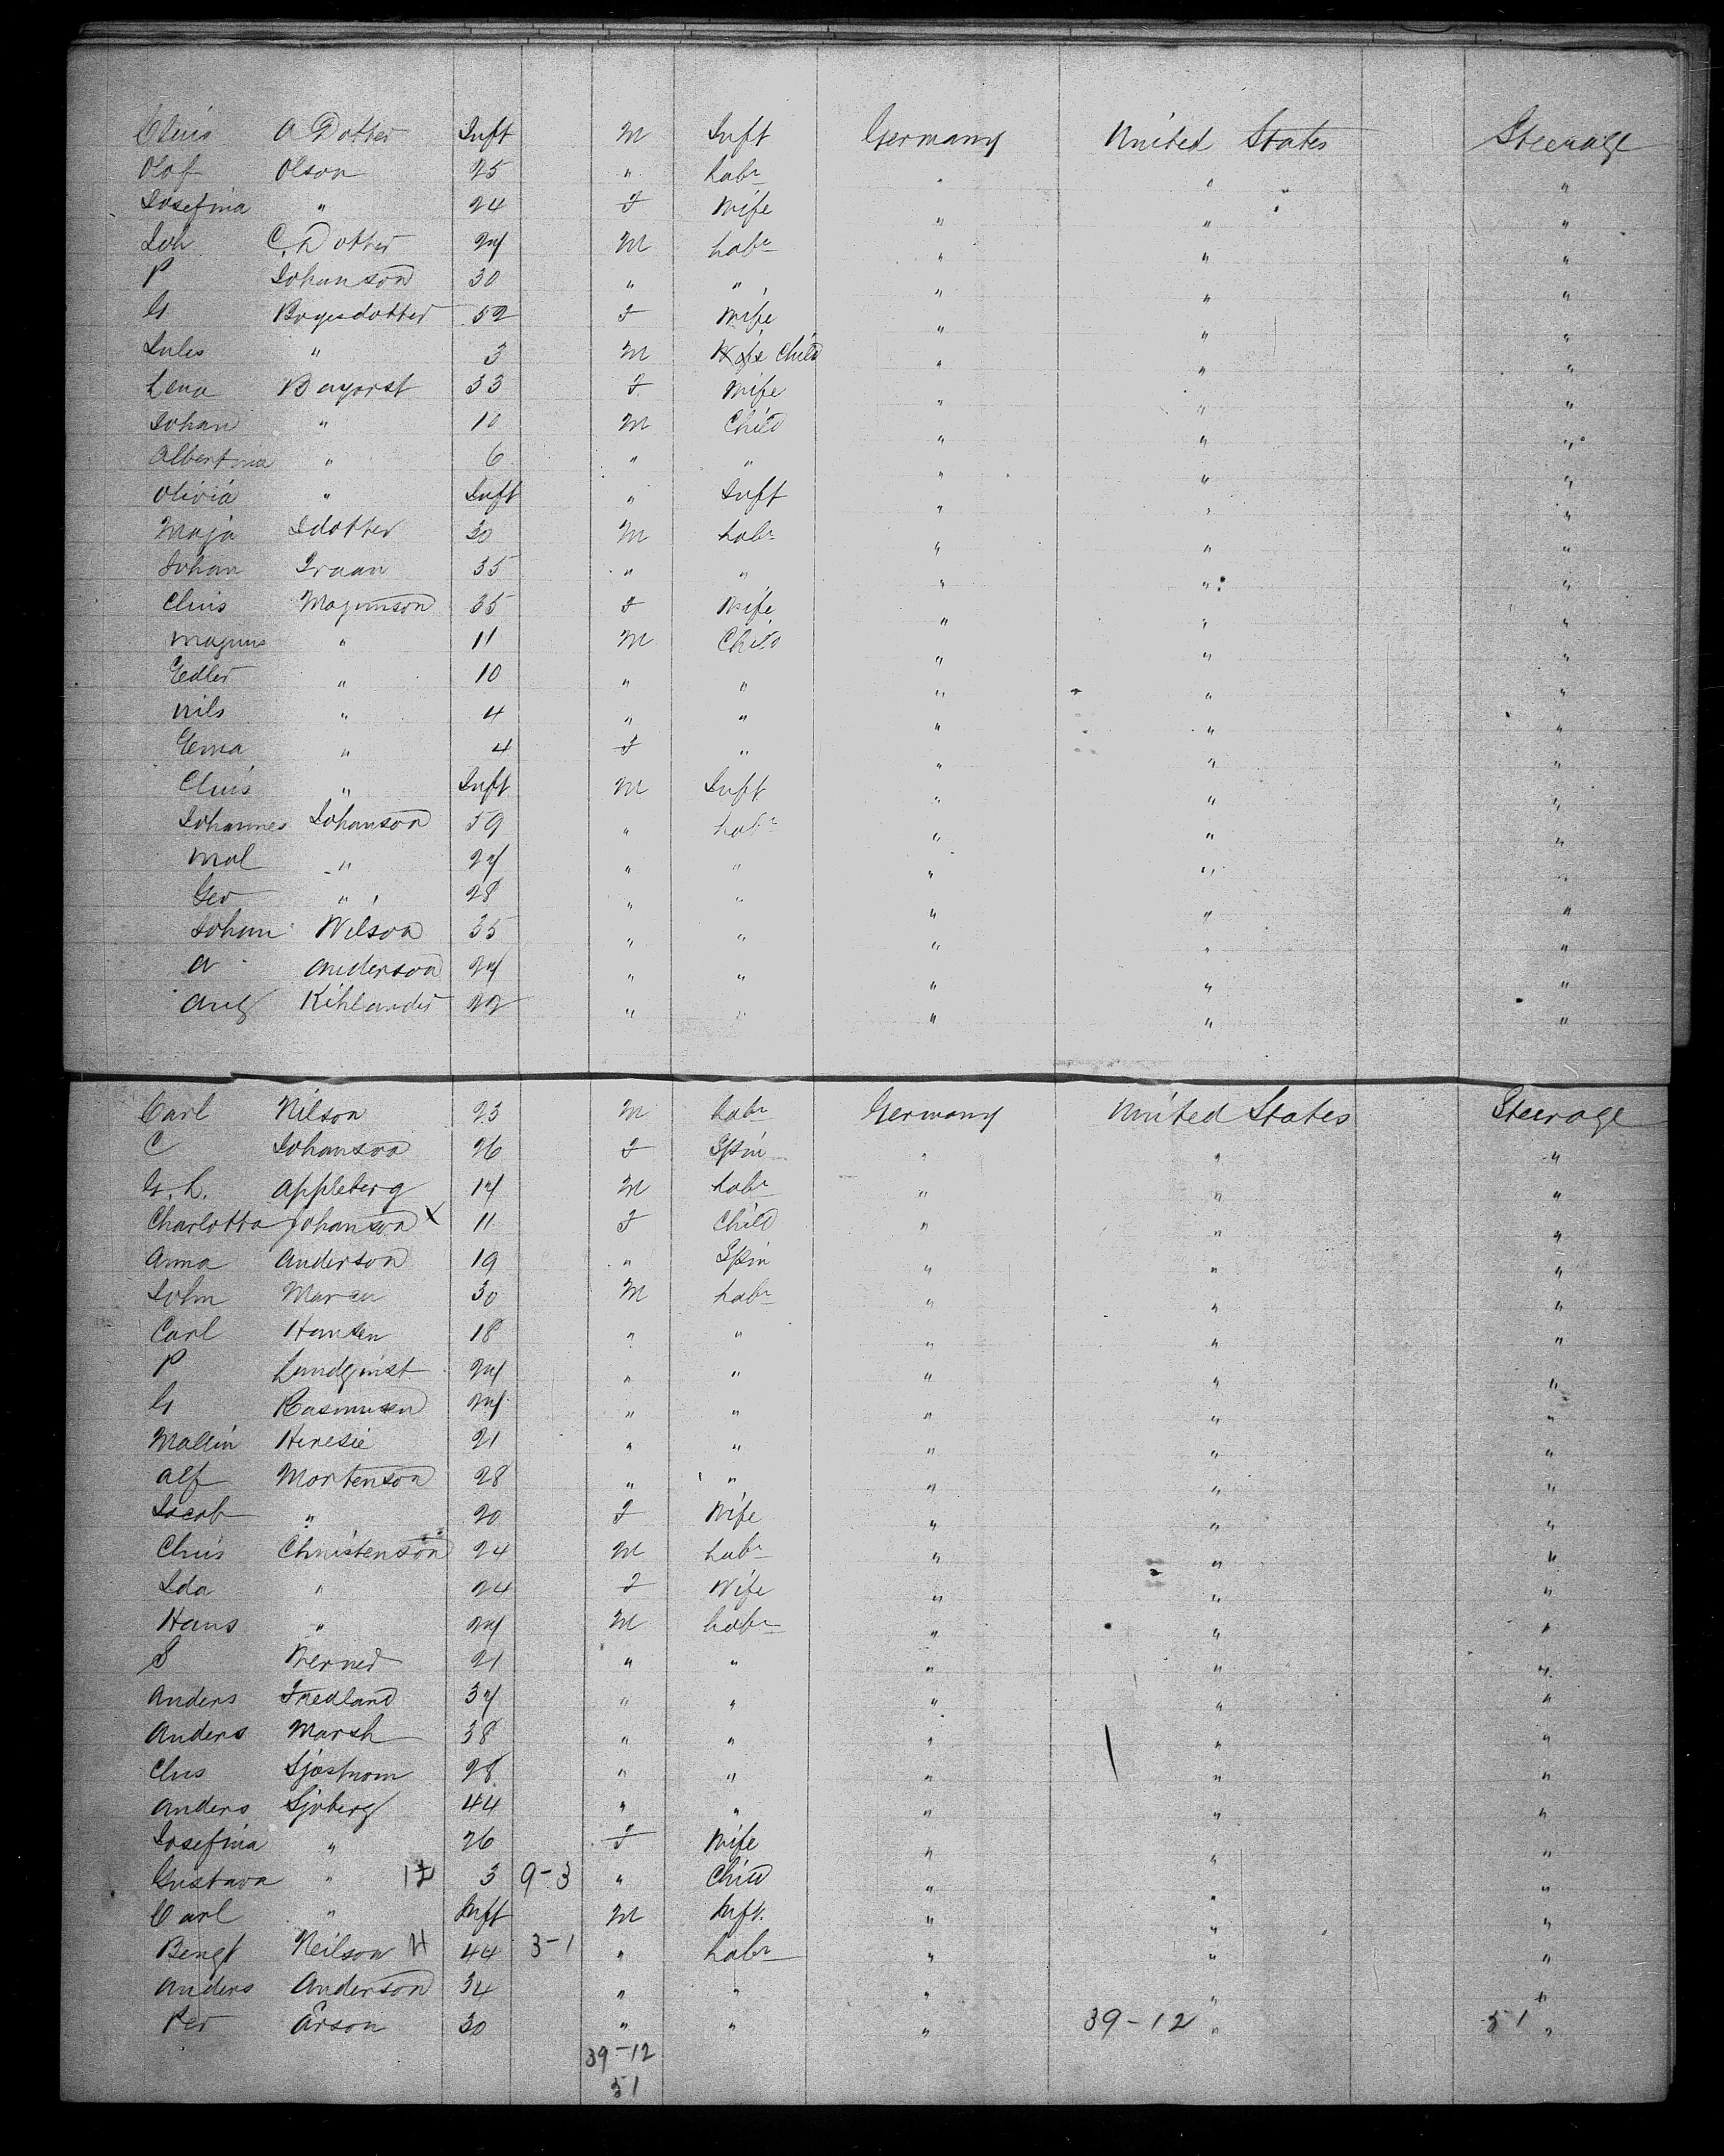 Chris A Dotter Inft M Inft Germany United States Steerage
Olof Olson 25 " Labr " " "
Josefina " 24 F Wife " " "
Joh C. Dotter 24 M Labr " " "
P Johanson 30 " " " " "
G 52 F Wife " " "
Jules " 3 M Wife Child " " "
Lena 33 F Wife " " "
Johan " 10 M Child " " "
Albertina " 6 " " " " "
Olivia " Inft " Inft " " "
Maja Idotter 30 M Labr " " "
Johan 35 " " " " "
Chris Magnuson 35 F Wife " " "
Magnus " 11 M Child " " "
" 10 " " " " "
Nils " 4 " " " " "
Ema " 4 F " " " "
Chris " Inft M Inft " " "
Johannes Johanson 59 " Labr " " "
" 24 " " " " "
Geo " 28 " " " " "
Johan Nilson 35 " " " " "
A Anderson 24 " " " " "
Aug Kihlander 22 " " " " "
Carl Nilson 23 M Labr Germany United States Steerage
C Johanson 26 F Spin " " "
G. L. Appleberg 14 M Labr " " "
Charlotta Johanson X 11 F Child " " "
Anna Anderson 19 " Spin " " "
John 30 M Labr " " "
Carl Hansen 18 " " " " "
P Lundquist 24 " " " " "
G Rasmusen 24 " " " " "
21 " " " " "
Alf Mortenson 28 " " " " "
Jacob " 20 F Wife " " "
Chris Christenson 24 M Labr " " "
Ida " 24 F Wife " " "
Hans " 24 M Labr " " "
S Werner 21 " " " " "
Anders Fredland 34 " " " " "
Anders Marsh 38 " " " " "
Chs Sjostrom 28 " " " " "
Anders Sjoberg 44 " " " " "
Josefina " 26 F Wife " " "
Gustava " 12 3 9-3 " Child " " "
Carl " Inft M Inft. " " "
Bengt Neilson 4 44 3-1 " Labr " " "
Anders Anderson 34 " " " " "
Per Arson 30 " " " 39-12 " 51 "
39-12
51